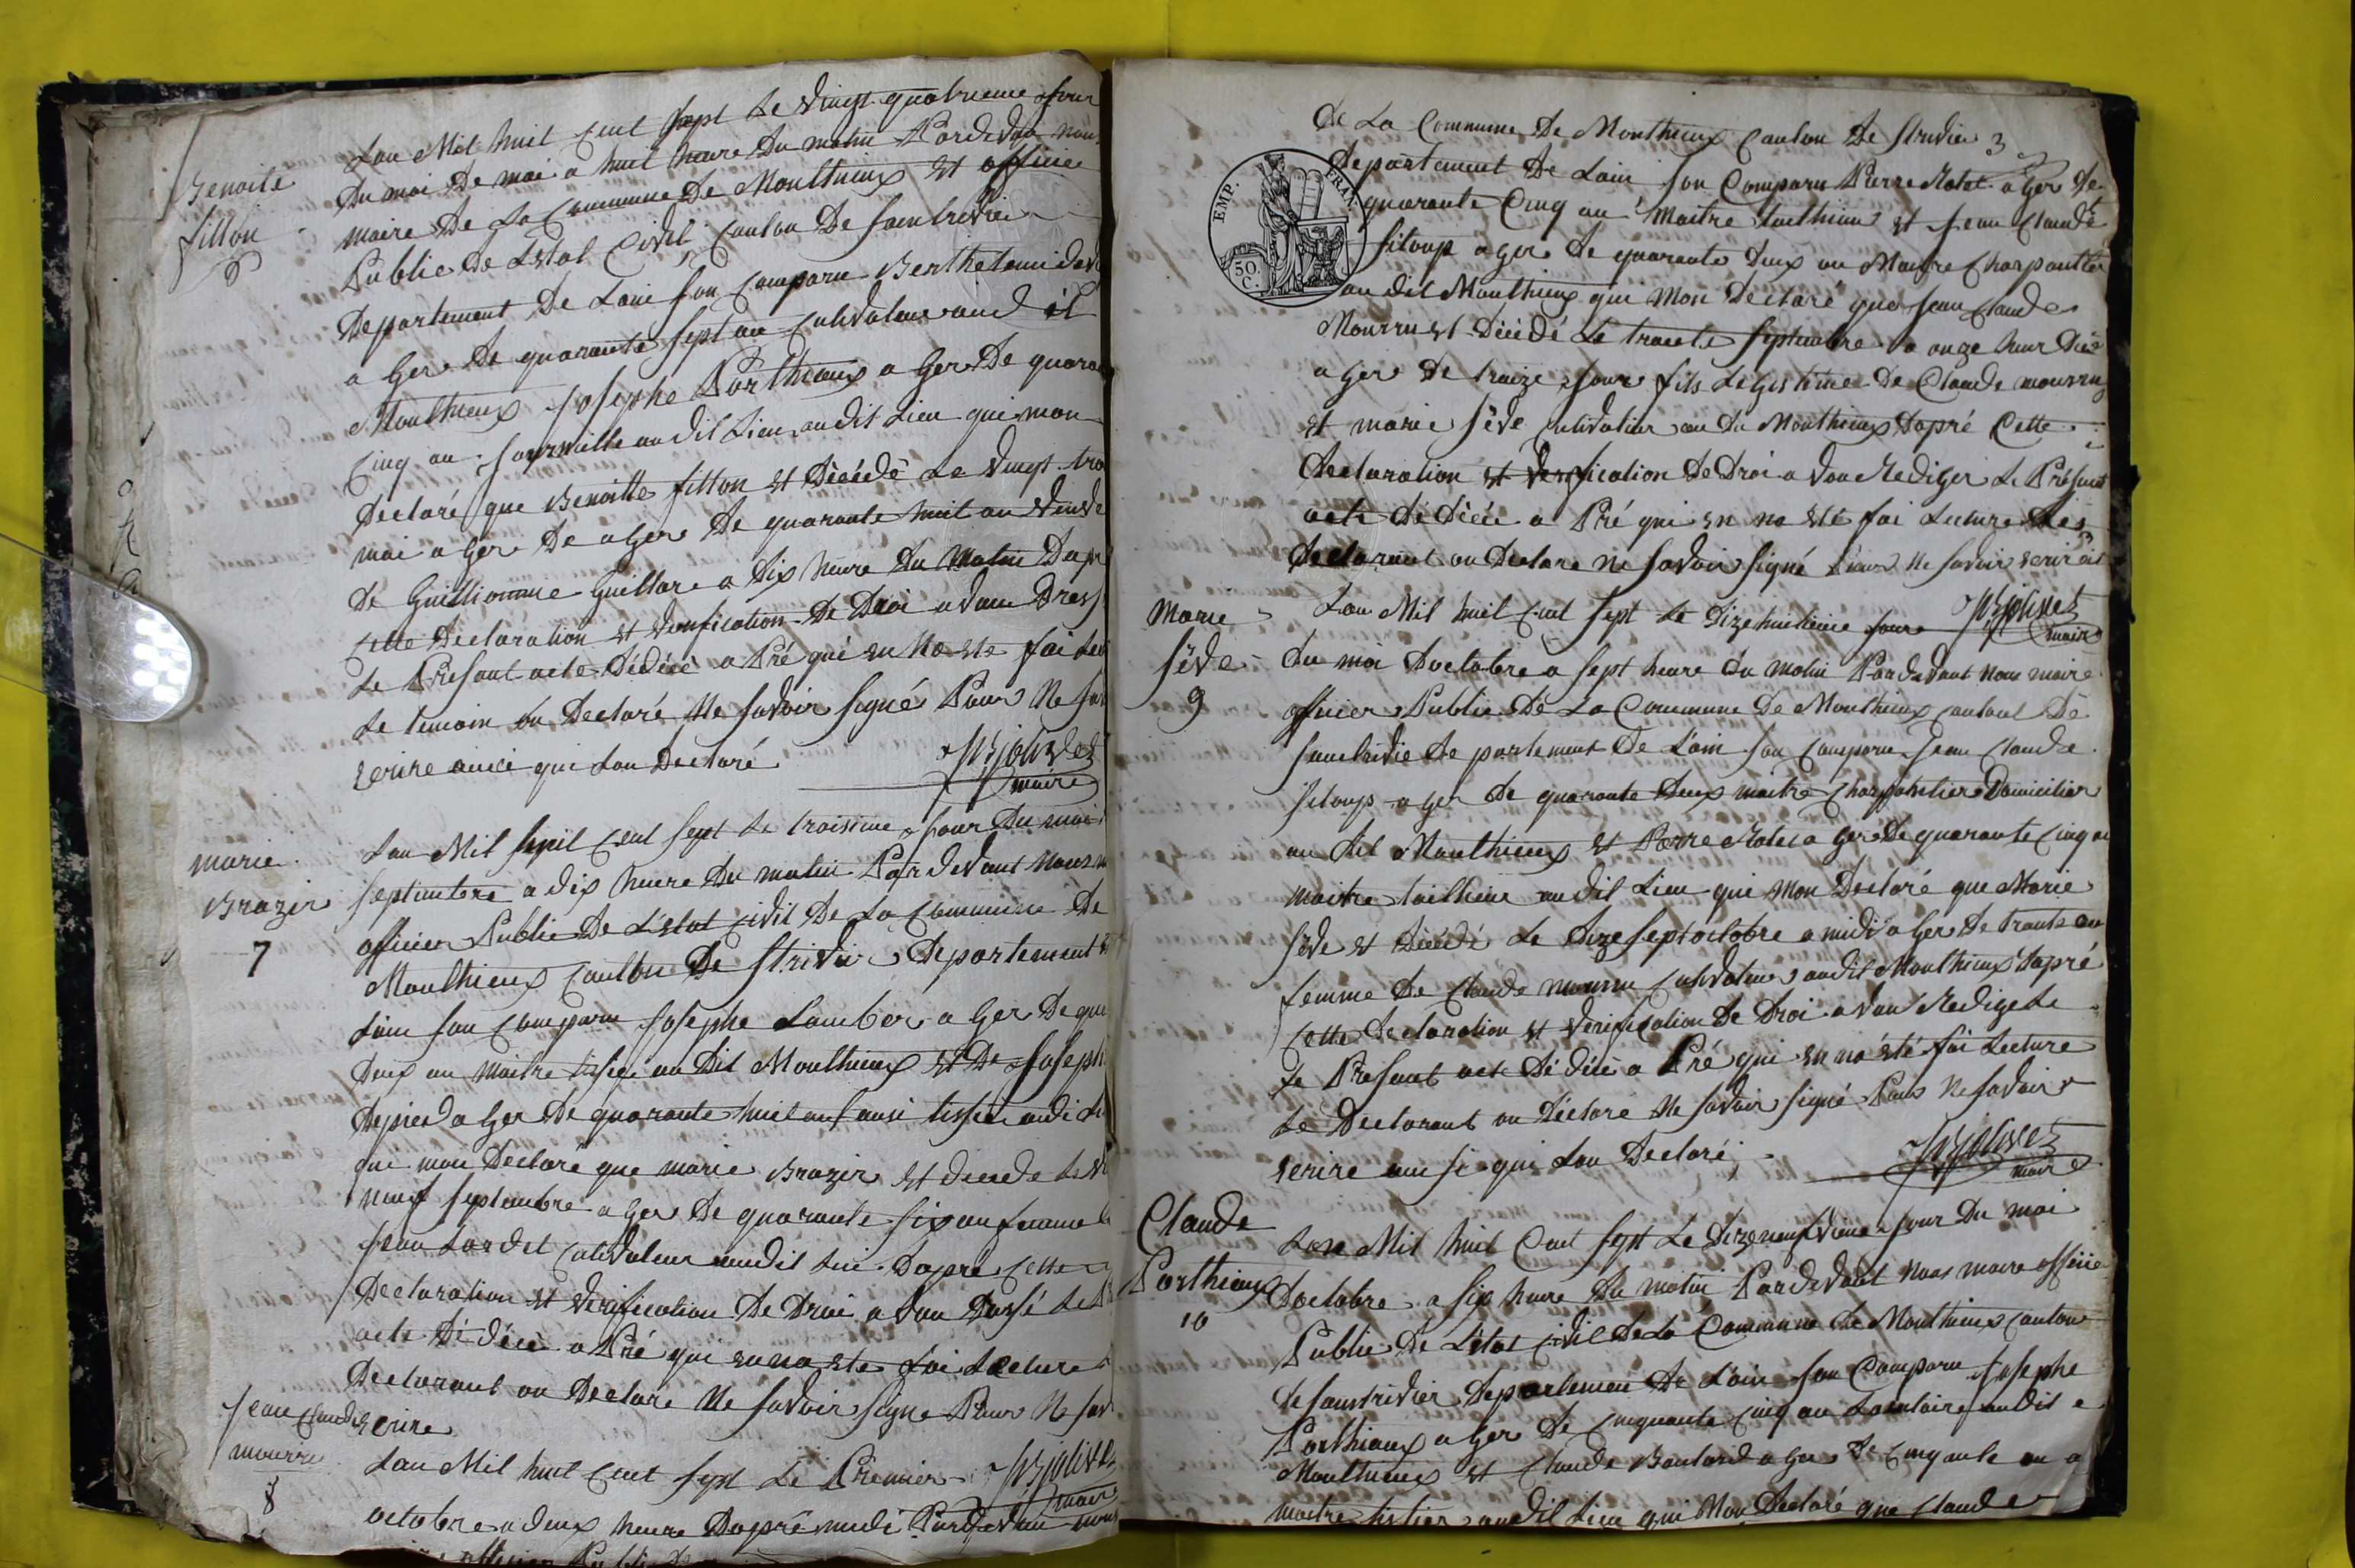 Benoite
fillon
6
Lan Mil huit cent sept Le vingt quatrieme jour
du moi de mai a huit heure du matin Pardevan nou
maire de La Commune de Monthieux et officie
Public de Letat Civil Canton de saintrivie
departement de Lain son comparu Berthelemi
a Ger de quarante sept an cultivateur aud it
Monthieux josephe Porthiaux a Ger De quara
Cinq an audit Lieu qui mon
declaré que Benoitte fillon et décédé Le vingt tro
mai a Ger de a Ger de quarante huit an veuve
de Guilliaume Guillare a dix heure du matin Dapr
cette declaration et verification de Droi avau Dress
Le Presant acte dédécé a Pré qui en na ete fai Lec
Le temoin on Declaré Ne savoir signé Pour Ne sav
ecrire ainci qui Lon Declaré
maire
marie
Brazir
7
Lan Mil huil cent sept Le troisieme jour du moi
septembre a dix heure du matin Pardevant nous m
officier Public De Letat civil De La Commune De
Monthieux Canton De Strivie Departement
Lain son comparu josephe Lamber a Ger De qua
deux an maitre au Dit Monthieux et De joseph
Depied a Ger de quarante huit an ausi tissié audi Li
que mon Declaré que marie Brazir et decede Le
neuf septembre a Ger de quarante six an femme
jean Lardet cultivateur audit Lieu Dapré cette
Declaration et verification De Droi avau Dressé Le
acte dédécé a Pré qui en na ete fai Lecture
Declarant on Declaré Ne savoir signe Pour Ne sav
ecrire
maire
jean claude
mourru
8
Lan Mil huit cent sept Le Premier
octobre a deux heure Dapré midi Pardevan nous
officier Public de
De La Commune De Monthieux Canton De Strivie 3
departement De Lain son Comparu Pierre a Ger de
quarante Cinq an Maitre et jean Claude
a Ger de quarante deux an Maitre Charpantier
au dit Monthieux qui mon Declaré que jean Claude
Mourru et décédé Le trante septembre a onze heur
a Ger de traize jour fils Legistime De Claude mourru
et marie sève cultivatier au du Monthieux Dapré Cette
declaration et verification de Droi avau Rediger Le Présant
acte dédécé a Pré qui en na eté fai Lecture Les
declarant on Declare ne savoir signé ne savoir ecrir
EMP. FRAN.
50.
C.
maire
Marie
sève
9
Lan Mil huit cent sept Le dizehuitieme jour
du moi doctobre a sept heure du matin Pardevant nous maire
officier Public De La Commune De Monthieux canton De
saintrivie departement De Lain son comparu jean claude
a Ger de quarante deux maitre charpantier Domicilier
au dit Monthieux et Pierre a Ger De quarante Cinq an
maitre au dit Lieu qui mon Declaré que Marie
sève et décédé Le dize sept octobre a midi a Ger de trante an
femme De Claude mourru cultivateur audit Monthieux dapré
Cette declaration et verification De Droi avau Redige Le
Le Presant acte dédécé a Pré qui en na été fai Lecture
Le Declarant on Declaré Ne savoir signé Pour Ne savoir
ecrire aussi qui Lon Declaré
maire
Claude
Porthiaux
10
Lan Mil huit Cent sept Le dizeneufvieme jour Du moi
doctobre a six heure du matin Pardevant nous maire officie
Public De Letat civil De La Commune De Monthieux canton
De saintrivier departement De Lain son Comparu josephe
Porthiaux a Ger de cinquante cinq an audit
Monthieux et Claude Boulard a Ger de cinqante an
maitre tistier audit Lieu qui Mon Declaré que Claude